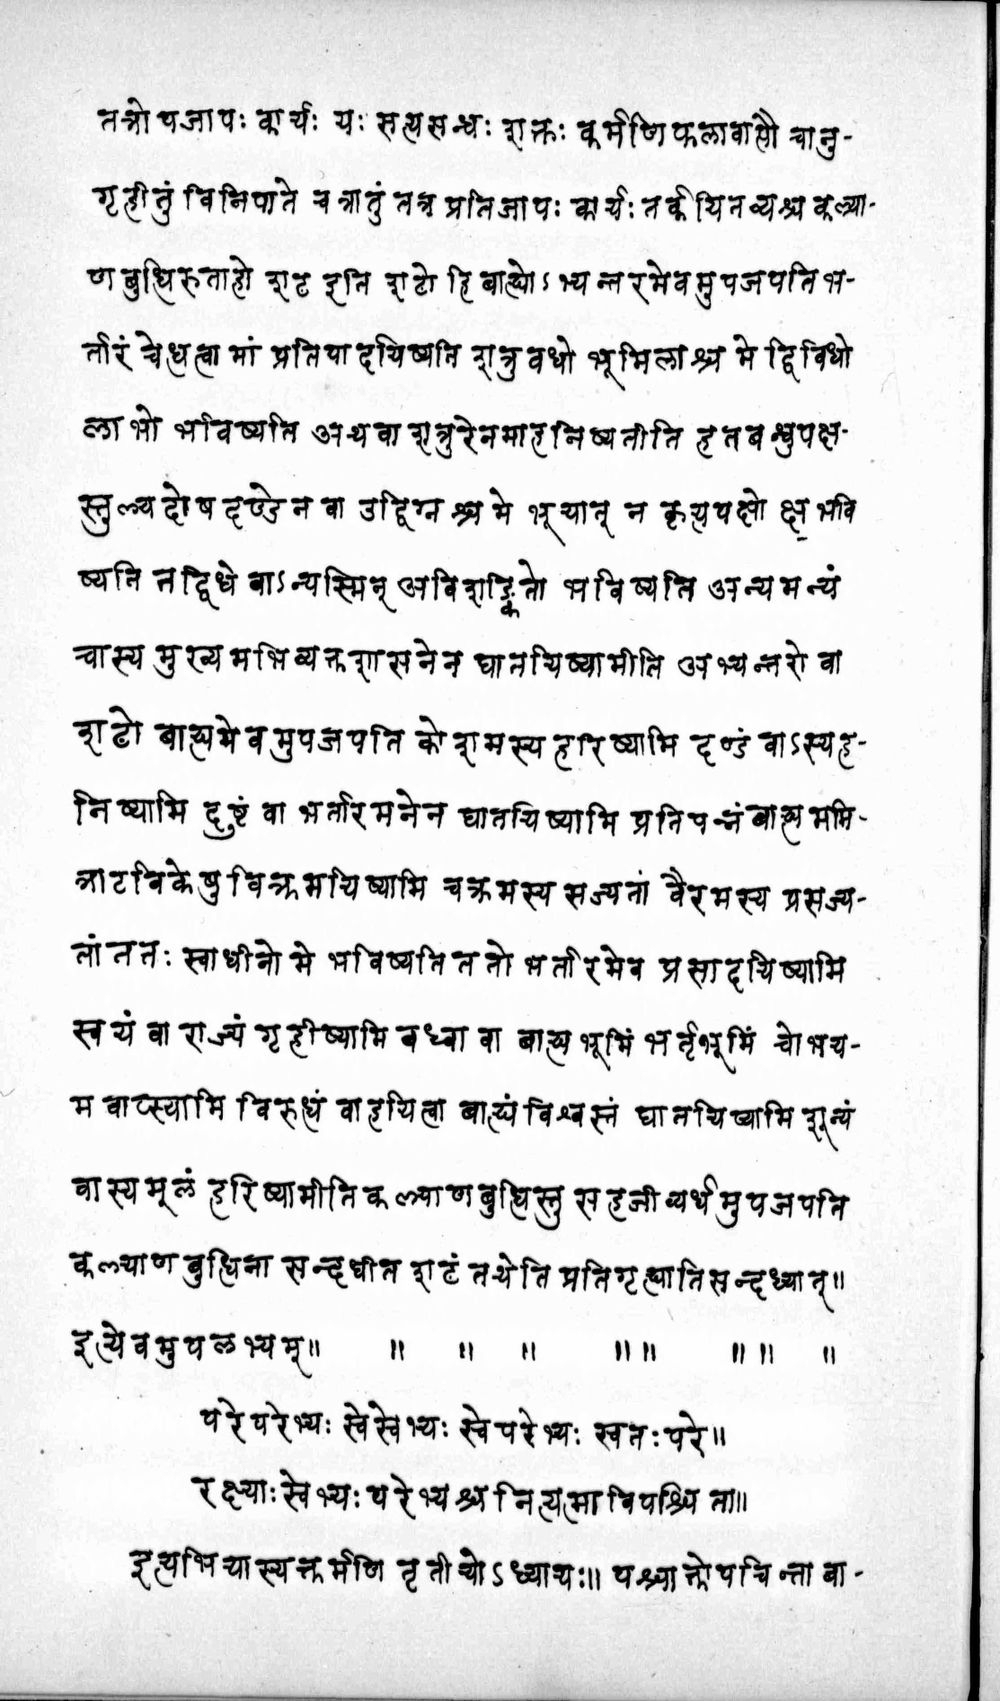 तत्रोपजापः कार्यः यः सत्यसन्धः शक्तः कर्मणि फलावाप्तौ चानु-
गृहीतुं विनिपाते च त्रातुं तत्र प्रतिजापः कार्यः तर्कयितव्यश्च कल्या-
णबुधिरुताहो शट इति शटो हि बाह्योऽभ्यन्तरमेवमुपजपति भ-
र्तारं चेधत्वा मां प्रतिपादयिष्यति शत्रुवधो भूमिलाश्च मे द्विविधो
लाभो भविष्यति अथवा शत्रुरेनमाहनिष्यतीति हतबन्धुपक्ष-
स्तुल्यदोषदण्डेन वा उद्विग्नश्च मे भूयान् न कृत्यपक्षो क्ष भवि
ष्यति तद्विधे वाऽन्यस्मिन् अविशङ्कितो भविष्यति अन्यमन्यं
चास्य मुख्यमभिव्यक्तशासनेन घातयिष्यामीति अभ्यन्तरो वा
शटो बाह्यमेवमुपजपति कोशमस्य हरिष्यामि दण्डं वाऽस्य ह-
निष्यामि दुष्टं वा भर्तारमनेन घातयिष्यामि प्रतिपन्नं बाह्यममि-
त्राटविकेषु विक्रमयिष्यामि चक्रमस्य सज्यतां वैरमस्य प्रसज्य-
तां ततः स्वाधीनो मे भविष्यति ततो भर्तारमेव प्रसादयिष्यामि
स्वयं वा राज्यं गृहीष्यामि बध्वा वा बाह्यभूमिं भर्तृभूमिं चोभय-
मवाप्स्यामि विरुधं वाहयित्वा बाह्यं विश्वस्तं घातयिष्यामि शून्यं
वास्य मूलं हरिष्यामीति कल्याणबुधिस्तु सहजीव्यर्थमुपजपति
कल्याणबुधिना सन्दधीत शटं तथेति प्रतिगृह्यातिसन्दध्यात्॥
इत्येवमुपलभ्यम्॥ ॥ ॥ ॥ ॥॥ ॥॥ ॥
परे परेभ्यः स्वे स्वेभ्यः स्वे परेभ्यः स्वतः परे॥
रक्ष्याः स्वेभ्यः परेभ्यश्च नित्यमाविपश्चिता॥
इत्यभियास्यत्कर्मणि तृतीयोऽध्यायः॥ पश्चात्कोपचिन्ता बा-